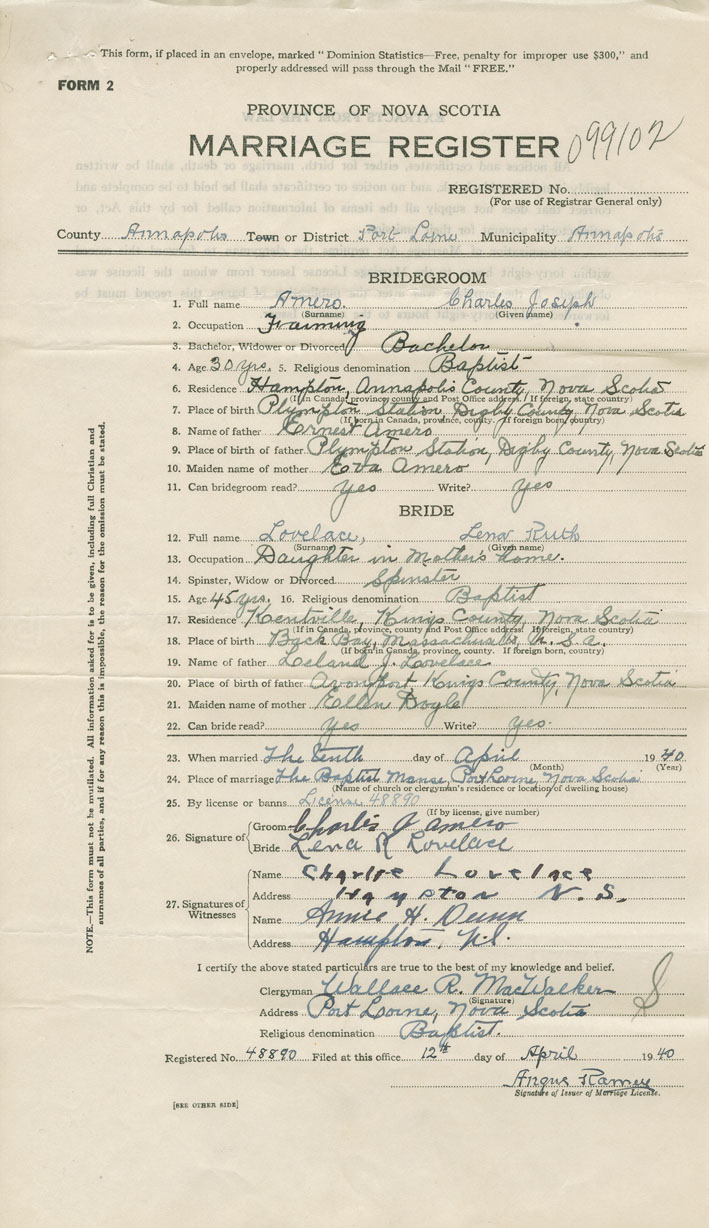 This form, if placed in an envelope, marked "Dominion Statistics—Free, penalty for improper use $300," and
properly addressed will pass through the Mail "FREE."
FORM 2
PROVINCE OF NOVA SCOTIA
MARRIAGE REGISTER 099102
REGISTERED No.
(For use of Registrar General only)
County Annapolis Town or District Port Lorne Municipality Annapolis
BRIDEGROOM
1. Full name Amero. Charles Joseph
(Surname) (Given name)
2. Occupation Farming
3. Bachelor, Widower or Divorced Bachelor
4. Age 30 yrs. 5. Religious denomination Baptist
6. Residence Hampton, Annapolis County, Nova Scotia
(If in Canada, province, county and Post Office address. If foreign, state country)
7. Place of birth Plympton Station Digby County, Nova Scotia
(If born in Canada, province, county. If foreign born, country)
8. Name of father Ernest Amero
9. Place of birth of father Plympton Station, Digby County, Nova Scotia
10. Maiden name of mother Eva Amero
11. Can bridegroom read? yes Write? yes
BRIDE
12. Full name Lovelace, Lena Ruth
(Surname) (Given name)
13. Occupation Daughter in Mother's home.
14. Spinster, Widow or Divorced Spinster
15. Age 45 yrs. 16. Religious denomination Baptist
17. Residence Kentville, Kings County, Nova Scotia
(If in Canada, province, county and Post Office address. If foreign, state country)
18. Place of birth Back Bay, Massachusetts, U. S. A.
(If born in Canada, province, county. If foreign born, country)
19. Name of father Leland J. Lovelace
20. Place of birth of father Avonport Kings County, Nova Scotia
21. Maiden name of mother Ellen Doyle
22. Can bride read? yes Write? yes.
23. When married The tenth day of April 1940
(Month) (Year)
24. Place of marriage The Baptist Manse, Port Lorne, Nova Scotia
(Name of church or clergyman's residence or location of dwelling house)
25. By license or banns License 48890
(If by license, give number)
26. Signature of
Groom Charles J Amero
Bride Lena R Lovelace
27. Signatures of Witnesses
Name Charlie Lovelace
Address Hampton N. S.
Name Annie H. Dunn
Address Hampton, N.S.
I certify the above stated particulars are true to the best of my knowledge and belief.
Clergyman Wallace R. MacWalker
(Signature)
Address Port Lorne, Nova Scotia
Religious denomination Baptist.
Registered No. 48890 Filed at this office 12th day of April 1940
Angus Ramey
Signature of Issuer of Marriage License.
[SEE OTHER SIDE]
NOTE.—This form must not be mutilated. All information asked for is to be given, including full Christian and
surnames of all parties, and if for any reason this is impossible, the reason for the omission must be stated.